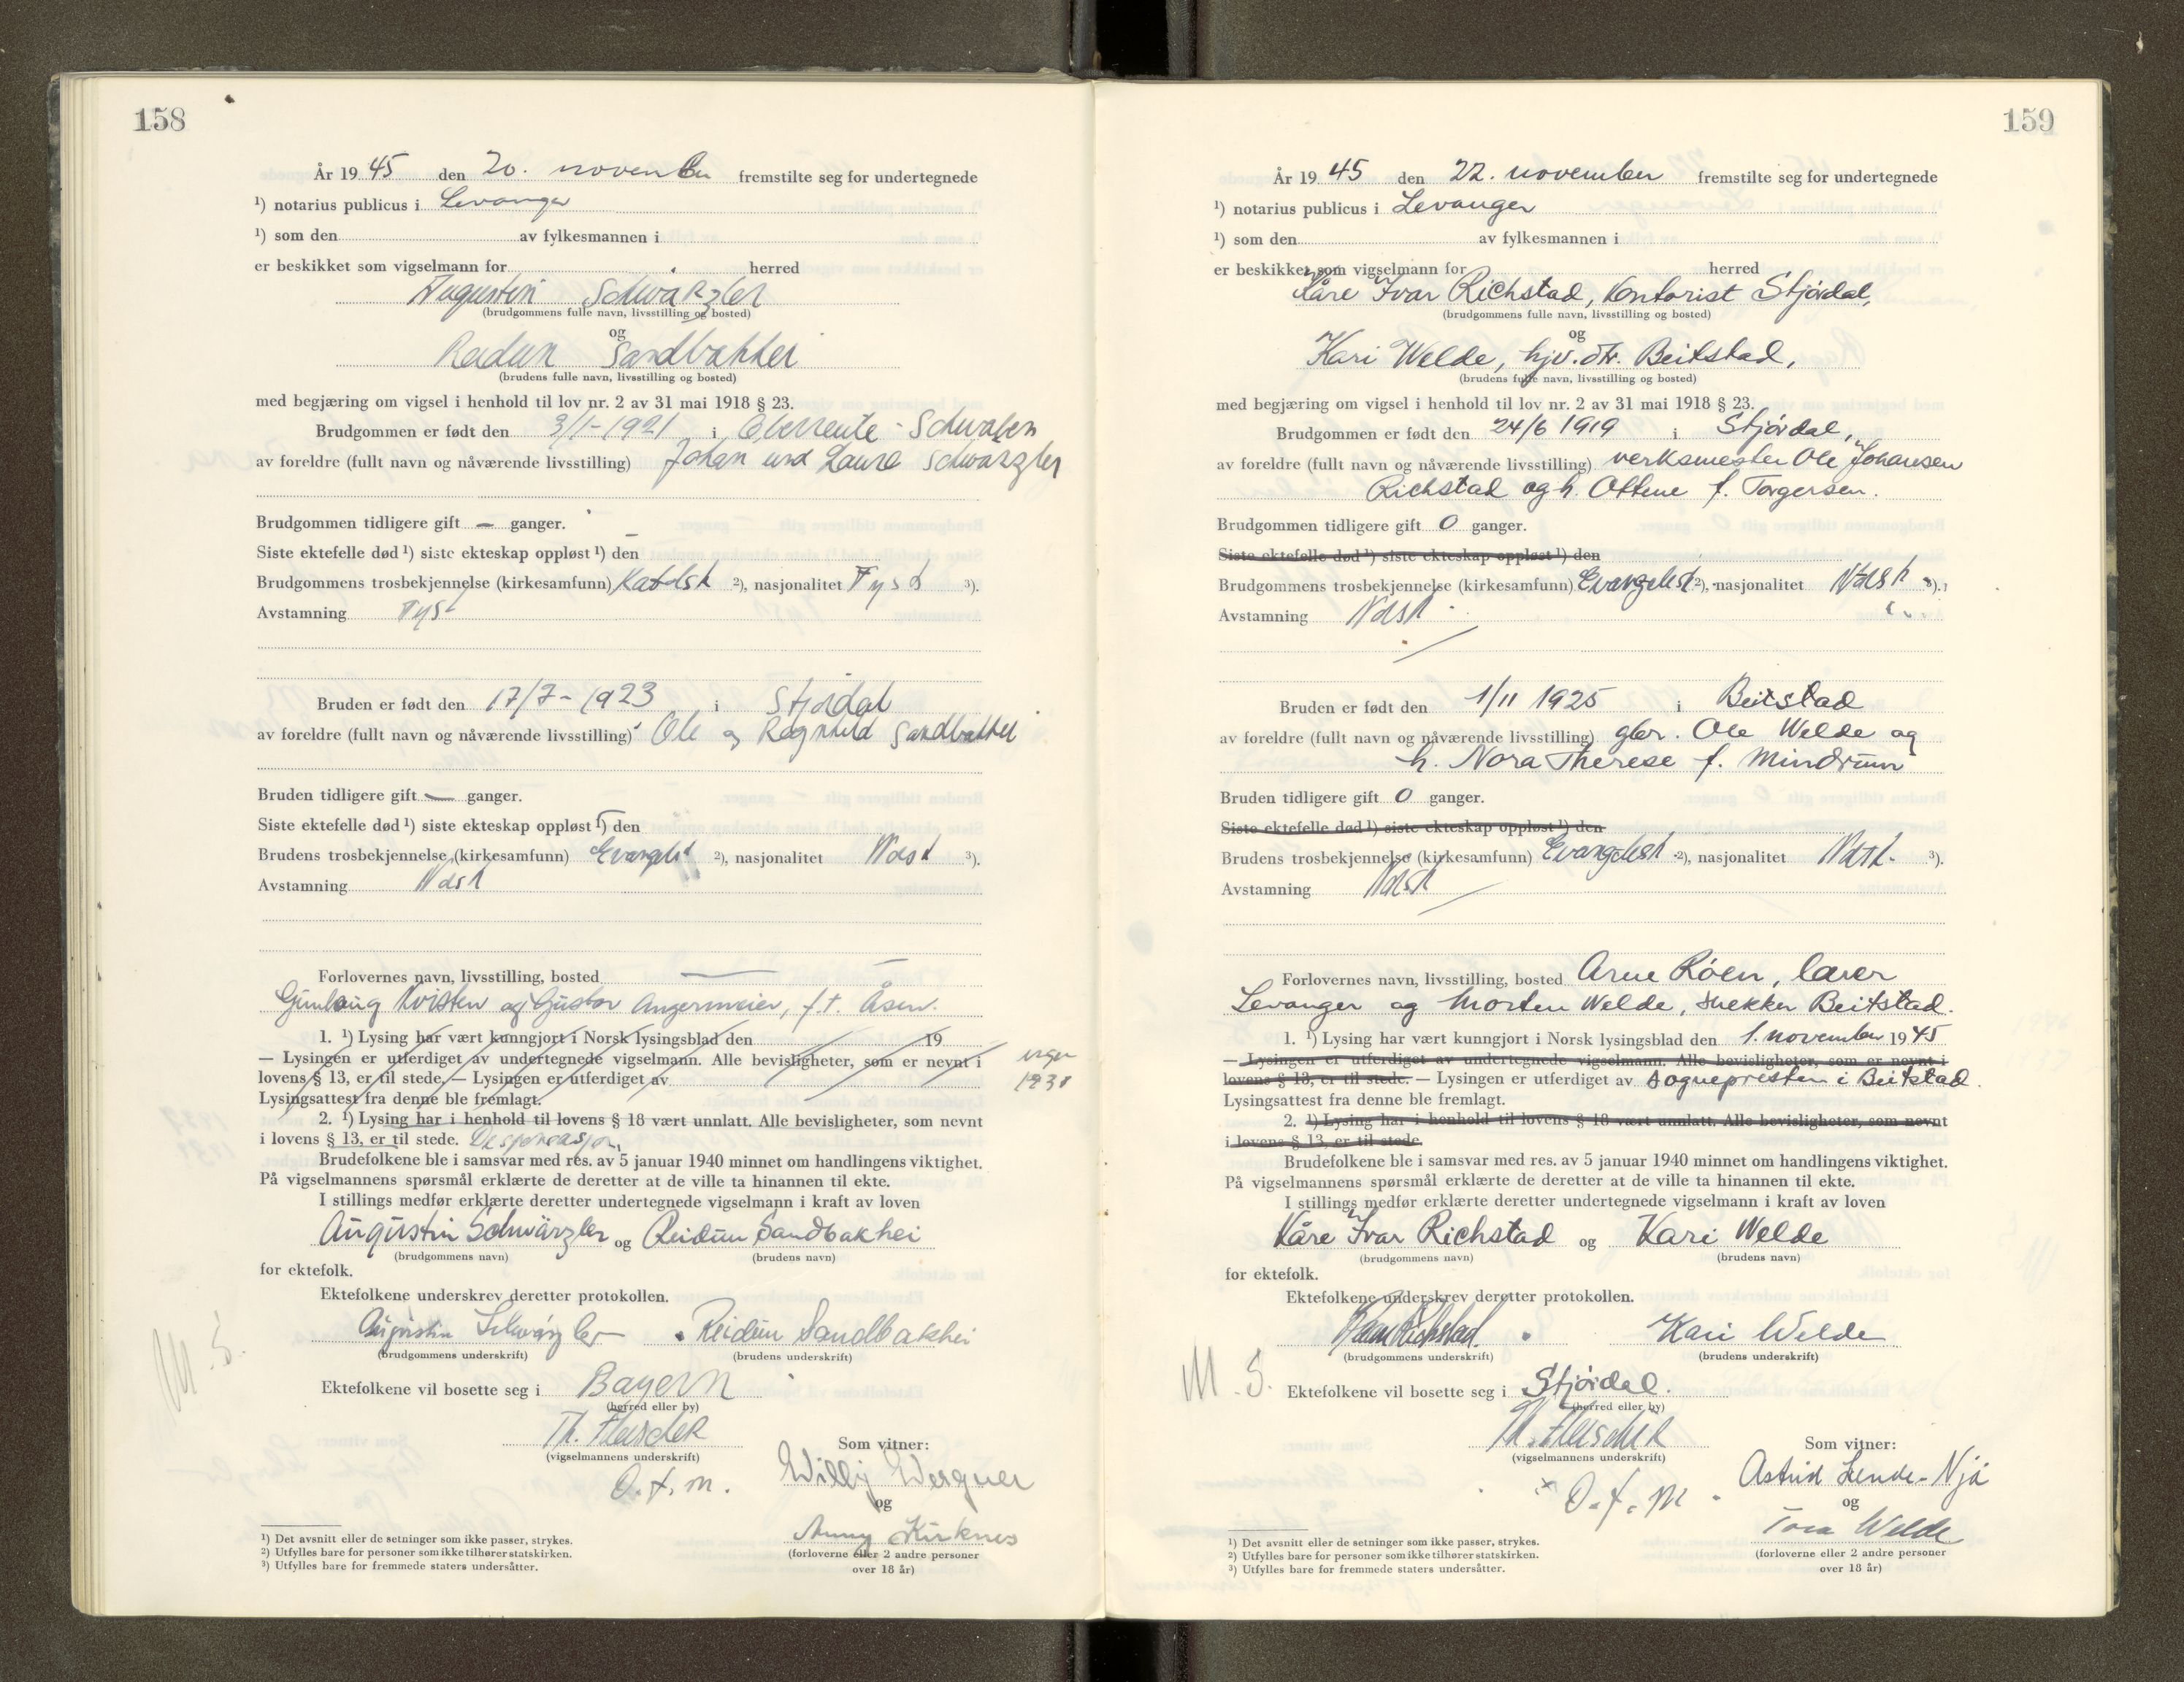 158
År 19 45 den 20. november fremstilte seg for undertegnede
¹) notarius publicus i Levanger
¹) som den av fylkesmannen i
er beskikket som vigselmann for herred
Augustin Schwarzler
(brudgommens fulle navn, livsstilling og bosted)
og
Reidun Sandbakhei
(brudens fulle navn, livsstilling og bosted)
med begjæring om vigsel i henhold til lov nr. 2 av 31 mai 1918 § 23.
Brudgommen er født den 3/1-1921 i Oberreute - Schwaben
av foreldre (fullt navn og nåværende livsstilling) Johan und Laura Schwarzler
Brudgommen tidligere gift — ganger.
Siste ektefelle død ¹) siste ekteskap oppløst ¹) den —
Brudgommens trosbekjennelse (kirkesamfunn) Katolsk ²), nasjonalitet Tysk ³).
Avstamning Tysk
Bruden er født den 17/7-1923 i Stjørdal
av foreldre (fullt navn og nåværende livsstilling) Ole og Ragnhild Sandbakhei
Bruden tidligere gift — ganger.
Siste ektefelle død ¹) siste ekteskap oppløst ¹) den
Brudens trosbekjennelse (kirkesamfunn) Evangelisk ²), nasjonalitet Norsk ³).
Avstamning Norsk
Forlovernes navn, livsstilling, bosted — —
Gunlaug Kvisten og Gustav Angermeier, f.t. Åsen.
1. ¹) Lysing har vært kunngjort i Norsk lysingsblad den 19
— Lysingen er utferdiget av undertegnede vigselmann. Alle bevisligheter, som er nevnt i
lovens § 13, er til stede. — Lysingen er utferdiget av
Lysingsattest fra denne ble fremlagt.
2. ¹) Lysing har i henhold til lovens § 18 vært unnlatt. Alle bevisligheter, som nevnt
i lovens § 13, er til stede. Dispensasjon
Brudefolkene ble i samsvar med res. av 5 januar 1940 minnet om handlingens viktighet.
På vigselmannens spørsmål erklærte de deretter at de ville ta hinannen til ekte.
I stillings medfør erklærte deretter undertegnede vigselmann i kraft av loven
Augustin Schwärzler og Reidun Sandbakhei
(brudgommens navn) (brudens navn)
for ektefolk.
Ektefolkene underskrev deretter protokollen.
Augustin Schwärzler Reidun Sandbakhei
(brudgommens underskrift) (brudens underskrift)
M.S.
Ektefolkene vil bosette seg i Bayern
(herred eller by)
Th. Fleischer
(vigselmannens underskrift)
O.f.m.
Som vitner:
Willy Wergner
og
Anny Kirknes
(forloverne eller 2 andre personer
over 18 år)
¹) Det avsnitt eller de setninger som ikke passer, strykes.
²) Utfylles bare for personer som ikke tilhører statskirken.
³) Utfylles bare for fremmede staters undersåtter.
159
År 19 45 den 22. november fremstilte seg for undertegnede
¹) notarius publicus i Levanger
¹) som den av fylkesmannen i
er beskikket som vigselmann for herred
Kåre Ivar Richstad, kontorist Stjørdal,
(brudgommens fulle navn, livsstilling og bosted)
og
Kari Welde, hjv. dtr. Beitstad,
(brudens fulle navn, livsstilling og bosted)
med begjæring om vigsel i henhold til lov nr. 2 av 31 mai 1918 § 23.
Brudgommen er født den 24/6 1919 i Stjørdal,
av foreldre (fullt navn og nåværende livsstilling) verksmester Ole Johansen
Richstad og h. Ottene f. Torgersen.
Brudgommen tidligere gift 0 ganger.
Siste ektefelle død ¹) siste ekteskap oppløst ¹) den
Brudgommens trosbekjennelse (kirkesamfunn) Evangelisk ²), nasjonalitet Norsk ³).
Avstamning Norsk
Bruden er født den 1/11 1925 i Beitstad
av foreldre (fullt navn og nåværende livsstilling) gbr. Ole Welde og
h. Nora Therese f. Mindrum
Bruden tidligere gift 0 ganger.
Siste ektefelle død ¹) siste ekteskap oppløst ¹) den
Brudens trosbekjennelse (kirkesamfunn) Evangelisk ²), nasjonalitet Norsk ³).
Avstamning Norsk
Forlovernes navn, livsstilling, bosted Arne Röen, lærer
Levanger og Morten Welde, snekker Beitstad.
1. ¹) Lysing har vært kunngjort i Norsk lysingsblad den 1. november 19 45
— Lysingen er utferdiget av undertegnede vigselmann. Alle bevisligheter, som er nevnt i
lovens § 13, er til stede. — Lysingen er utferdiget av sognepresten i Beitstad.
Lysingsattest fra denne ble fremlagt.
2. ¹) Lysing har i henhold til lovens § 18 vært unnlatt. Alle bevisligheter, som nevnt
i lovens § 13, er til stede.
Brudefolkene ble i samsvar med res. av 5 januar 1940 minnet om handlingens viktighet.
På vigselmannens spørsmål erklærte de deretter at de ville ta hinannen til ekte.
I stillings medfør erklærte deretter undertegnede vigselmann i kraft av loven
Kåre Ivar Richstad og Kari Welde
(brudgommens navn) (brudens navn)
for ektefolk.
Ektefolkene underskrev deretter protokollen.
Kåre Richstad. Kari Welde
(brudgommens underskrift) (brudens underskrift)
M.S.
Ektefolkene vil bosette seg i Stjørdal.
(herred eller by)
Th. Fleischer
(vigselmannens underskrift)
O.f.m.
Som vitner:
Astrid Lende-Njå
og
Tora Welde
(forloverne eller 2 andre personer
over 18 år)
¹) Det avsnitt eller de setninger som ikke passer, strykes.
²) Utfylles bare for personer som ikke tilhører statskirken.
³) Utfylles bare for fremmede staters undersåtter.